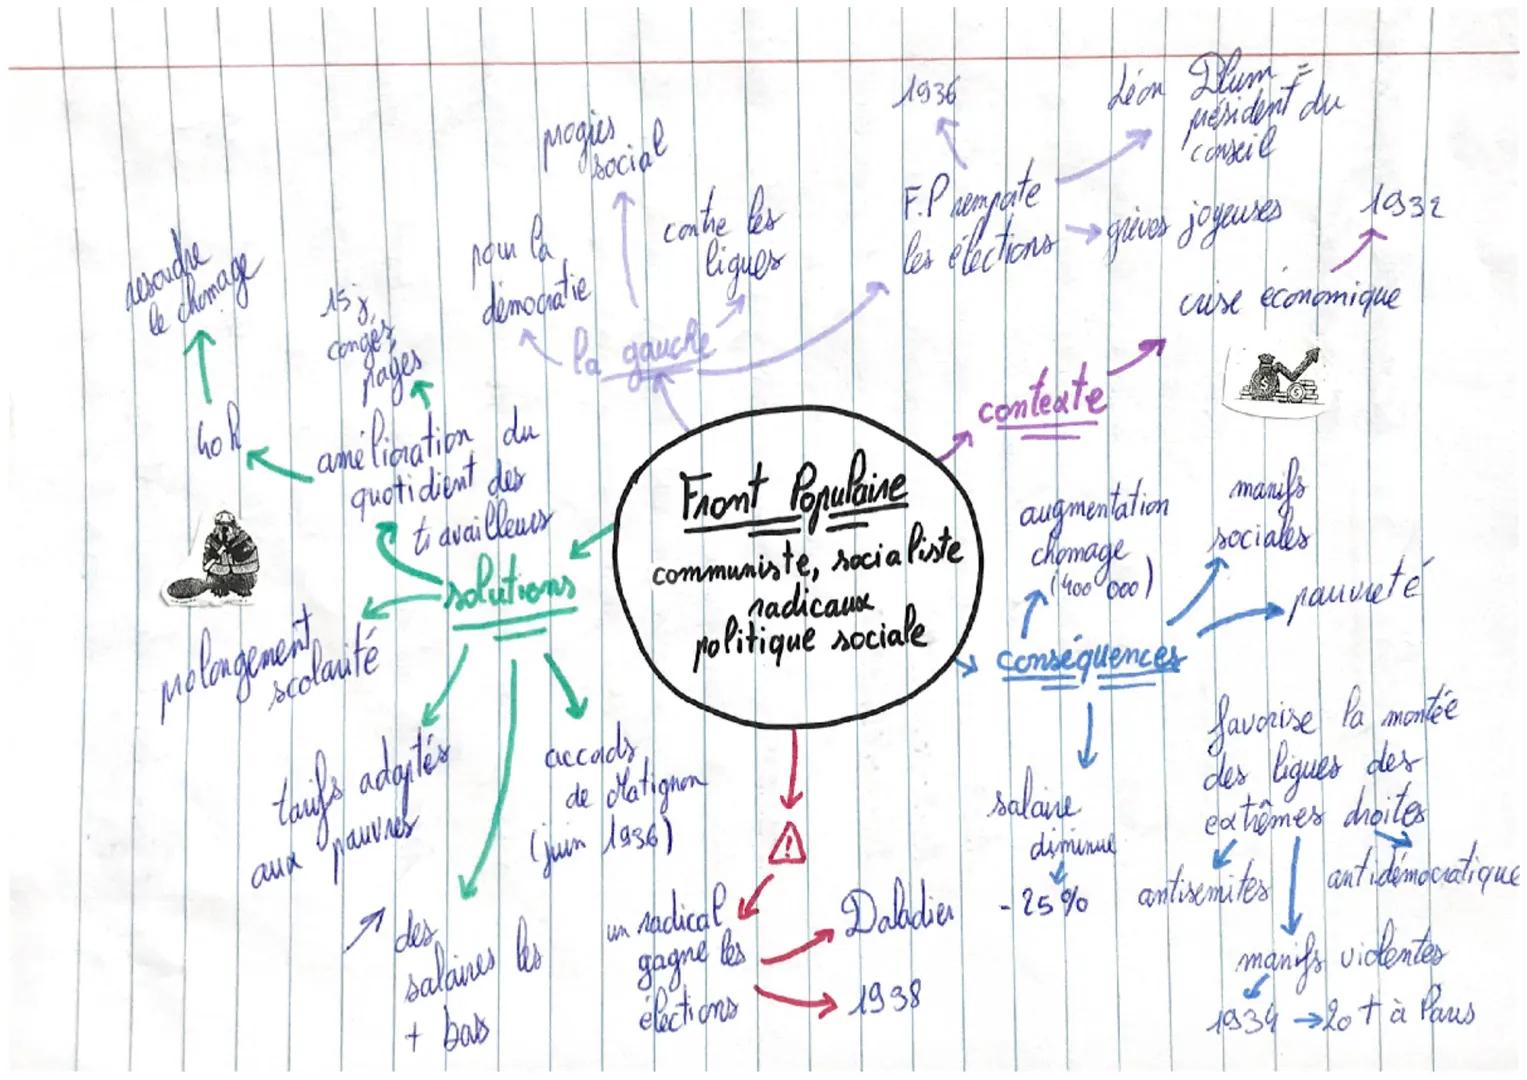 Front Populaire
communiste, socialiste
radicaux
politique sociale
contexte
crise économique
1932
conséquences
augmentation
chomage
(400 000)
manifs
sociales
pauvreté
salaire
diminue
- 25 %
favorise la montée
des ligues des
extrêmes droites
antisemites
antidémocratique
manifs violentes
1934 → 20 † à Paris
un radical
gagne les
élections
Daladier
1938
solutions
accords
de Matignon
(juin 1936)
↗ des
salaires les
+ bas
tarifs adaptés
aux pauvres
prolongement
scolarité
amélioration du
quotidient des
travailleurs
40 h
resoudre
le chomage
15 j
congés
payés
la gauche
pour la
démocratie
progrès
social
contre les
ligues
F.P remporte
les élections
1936
Léon Blum =
président du
conseil
grèves joyeuses